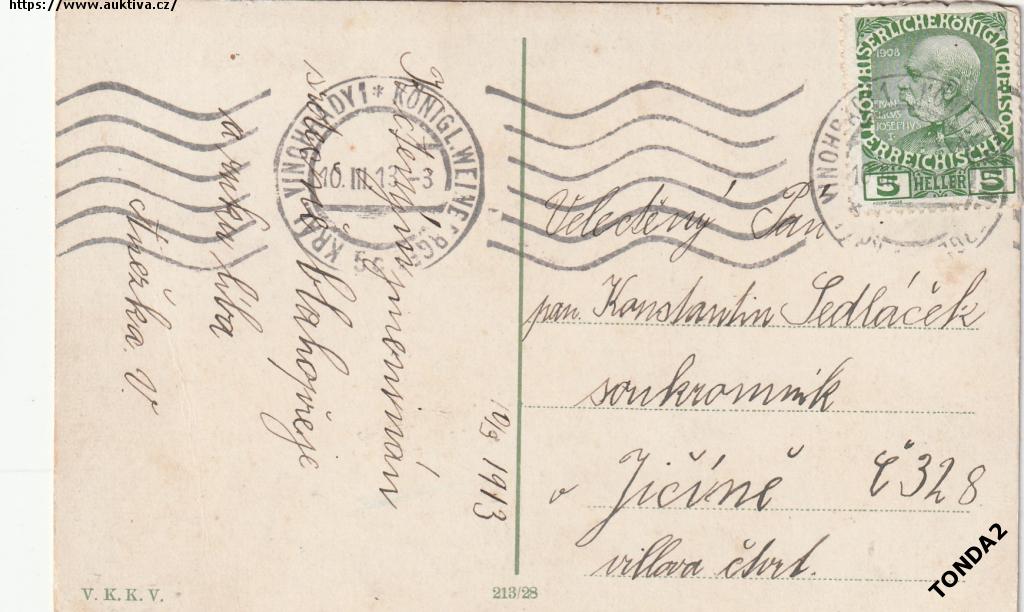 https://www.auktiva.cz/
K ctěným jmeninám
srdečně blahopřeje
a ruku líbá
Anežka V.
10/3 1913
KRÁL. VINOHRADY 1 * KÖNIGL. WEINBERGE
10. III. 13
KAISERLICHE KÖNIGLICHE
ÖSTERREICHISCHE
1908
5 HELLER 5
Velectěný Pán
pan. Konstantin Sedláček
soukromník
v Jičíně č 328
villova čtvrt.
V. K. K. V.
213/28
TONDA2